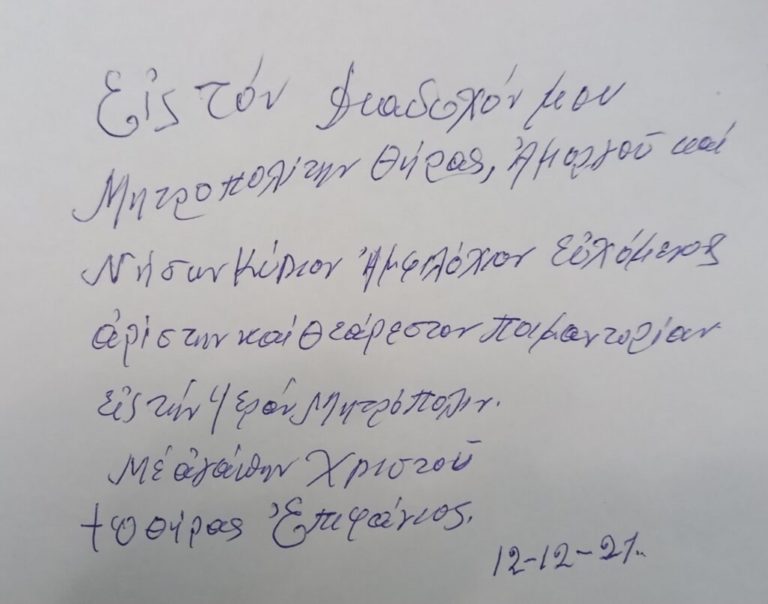 Εἰς τόν Διαδοχόν μου
Μητροπολίτην Θήρας, Ἀμοργοῦ καί
Νήσων Κύριον Ἀμφιλόχιον εὐχόμενος
ἀρίστην καί θεάρεστον ποιμαντορίαν
εἰς τήν Ἱεράν Μητρόπολιν.
Μέ ἀγάπην Χριστοῦ
† ὁ Θήρας Ἐπιφάνιος.
12-12-21.